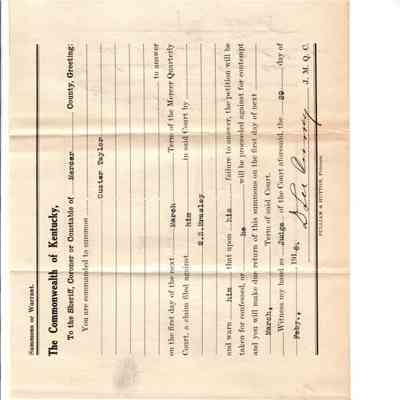 Summons or Warrant.
The Commonwealth of Kentucky,
To the Sheriff, Coroner or Constable of Mercer County, Greeting:
You are commanded to summon
Custer Taylor
to answer
on the first day of the next March Term of the Mercer Quarterly
Court, a claim filed against him in said Court by
and warn him that upon his failure to answer, the petition will be
taken for confessed, or he will be proceeded against for contempt
and you will make due return of this summons on the first day of next
March, Term of said Court.
Witness my hand as Judge of the Court aforesaid, the 29 day of
Feby., 191
J. M. Q. C.
PULLIAM & HUTTON, Printers